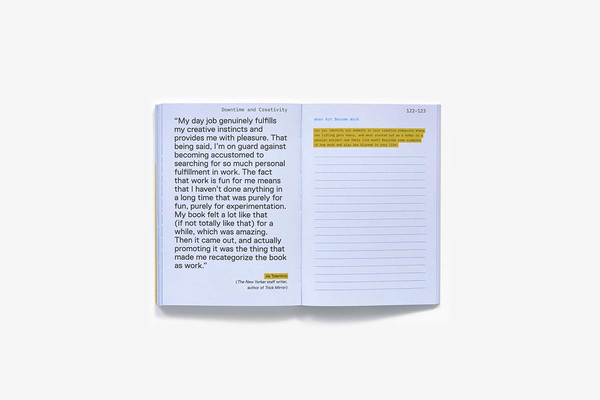 Downtime and Creativity
"My day job genuinely fulfills
my creative instincts and
provides me with pleasure. That
being said, I'm on guard against
becoming accustomed to
searching for so much personal
fulfillment in work. The fact
that work is fun for me means
that I haven't done anything in
a long time that was purely for
fun, purely for experimentation.
My book felt a lot like that
(if not totally like that) for a
while, which was amazing.
Then it came out, and actually
promoting it was the thing that
made me recategorize the book
as work."
Jia Tolentino
(The New Yorker staff writer,
author of Trick Mirror)
122–123
When Art Become Work